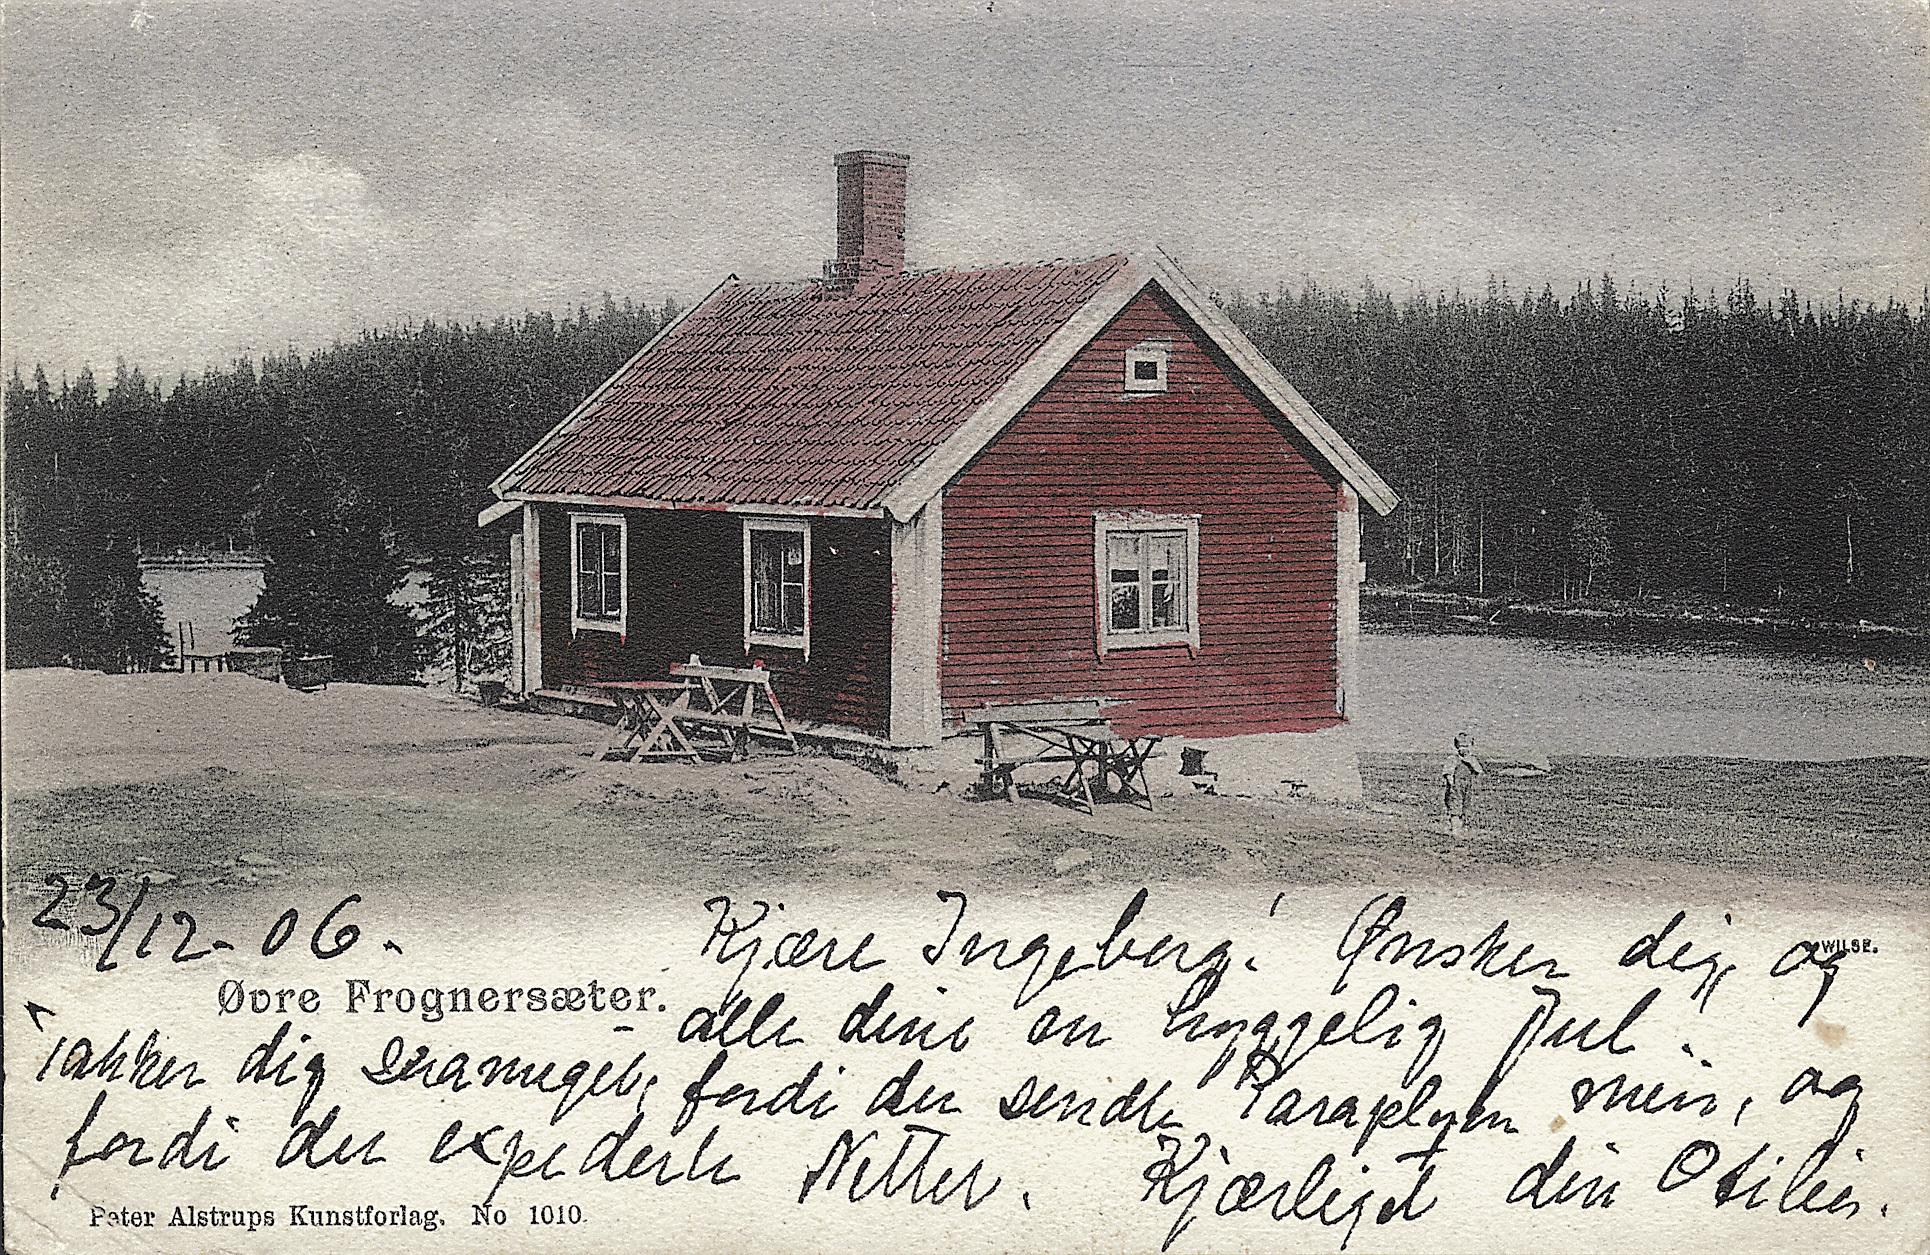 23/12-06.
Kjære Ingeberg! Ønsker dig, og
WILSE.
Øvre Frognersæter.
alle dine en hyggelig Jul.
Takker dig saameget, fordi du sendte Paraplyen min, og
fordi du expederte Netter. Kjærligst din Otilie.
Peter Alstrups Kunstforlag. No 1010.